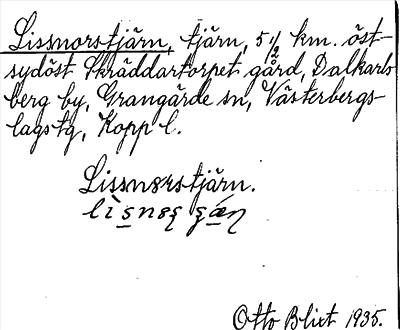 Lissnorstjärn, tjärn, 5 1/2 km. öst-
sydöst Skräddartorpet gård, Dalkarls
berg by, Grangärde sn, Västerbergs-
lags tg, Kopp l.
Lissnorstjärn.
Otto Blixt 1935.